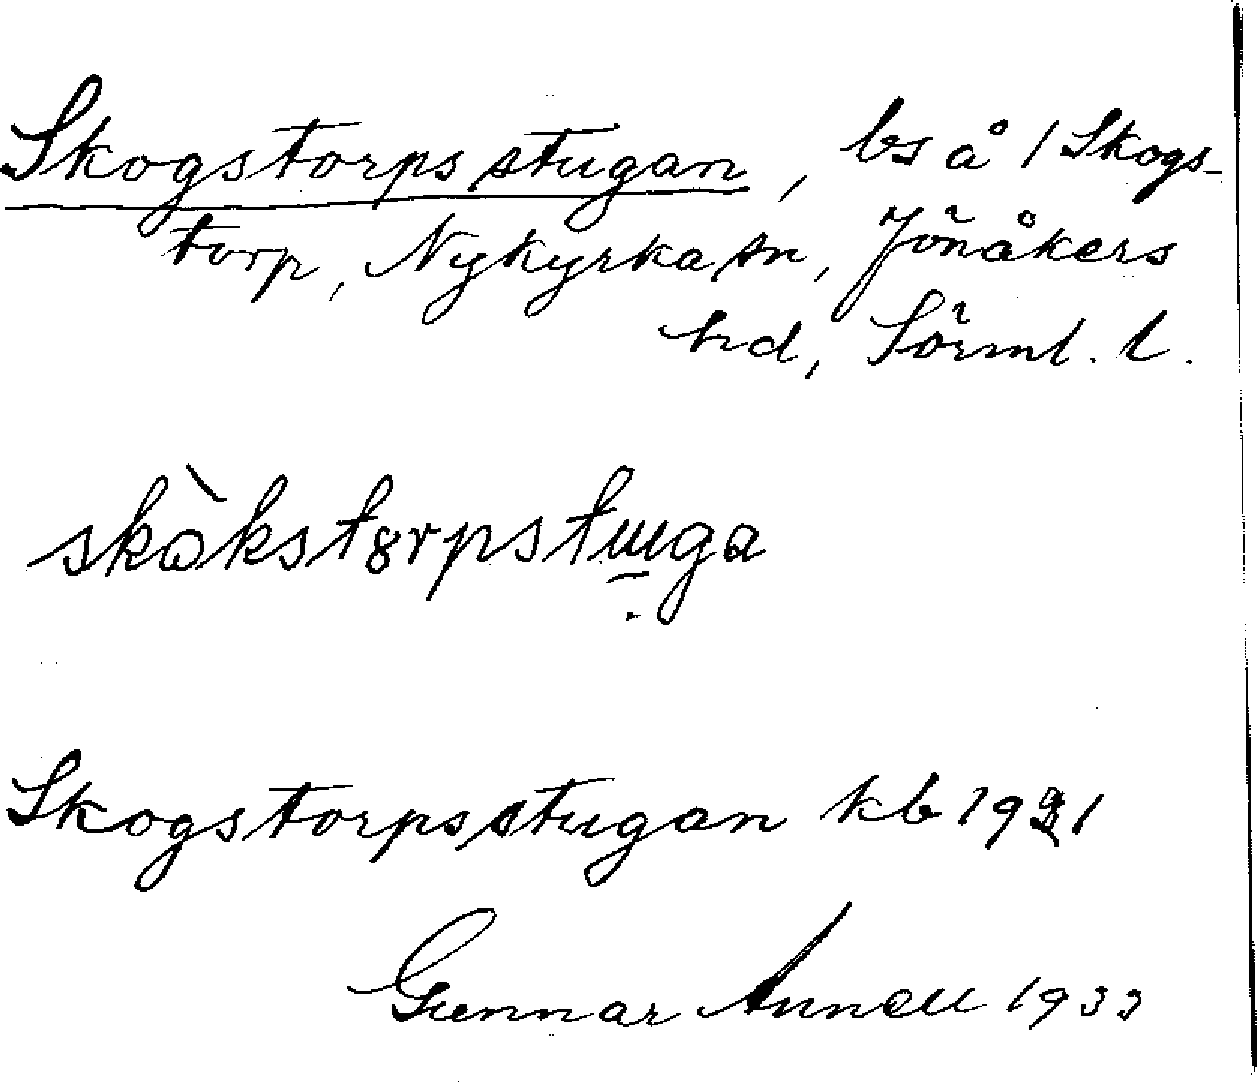 Skogstorpsstugan, bs å 1 Skogs-
torp, Nykyrka sn, Jönåkers
hd, Sörml. l.
skòkstørpstuga
Skogstorpsstugan kb 1921
Gunnar Annell 1933